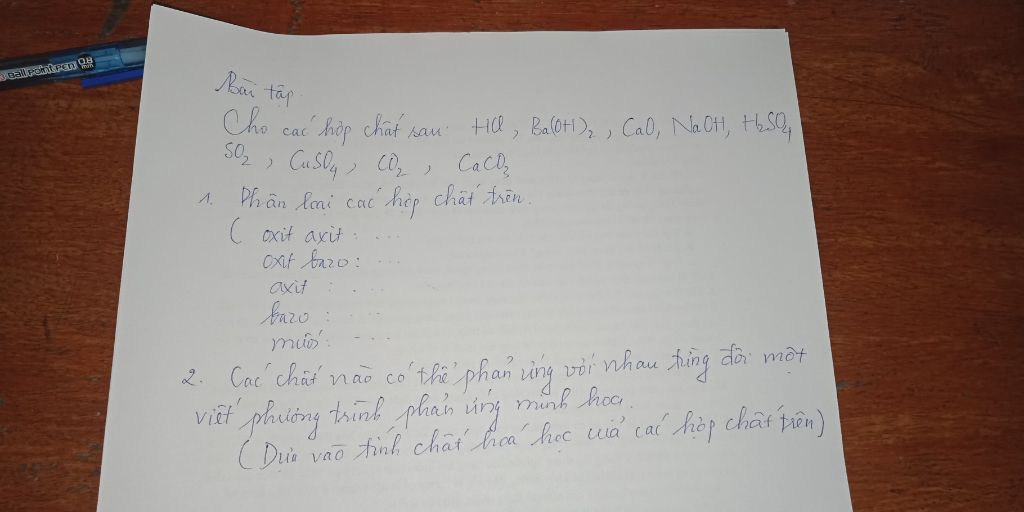 Ball Point Pen 0.8 mm
Bài tập.
Cho các hợp chất sau: HCl, Ba(OH)2, CaO, NaOH, H2SO4
SO2, CuSO4, CO2, CaCO3
1. Phân loại các hợp chất trên.
( oxit axit : ...
oxit bazo : ...
axit : ...
bazo : ...
muối : ...
2. Các chất nào có thể phản ứng với nhau từng đôi một
viết phương trình phản ứng minh hoạ.
(Dựa vào tính chất hoá học của các hợp chất trên)